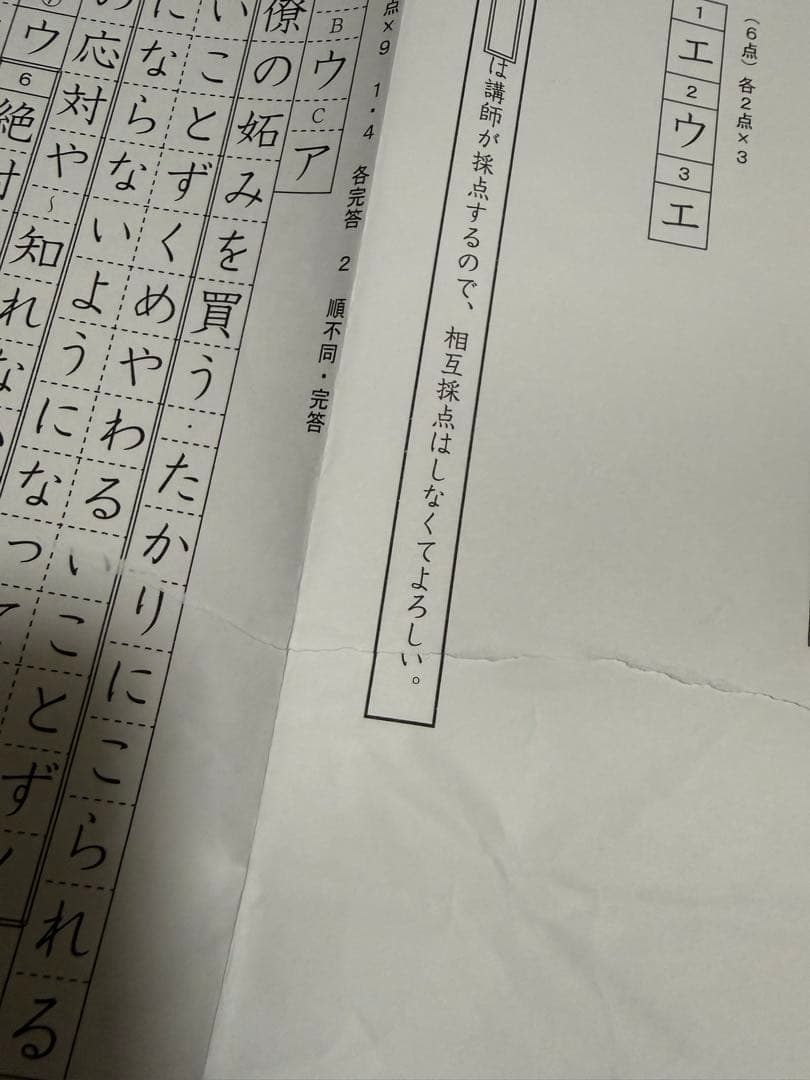 （6点）各2点×3
1 エ 2 ウ 3 エ
は講師が採点するので、相互採点はしなくてよろしい。
点×9 1・4 各完答 2 順不同・完答
B ウ C ア
僚の妬みを買う・たかりにこられる
いことずくめやわるいことず
にならないようになって
の応対や～知れない
ウ 6 絶対